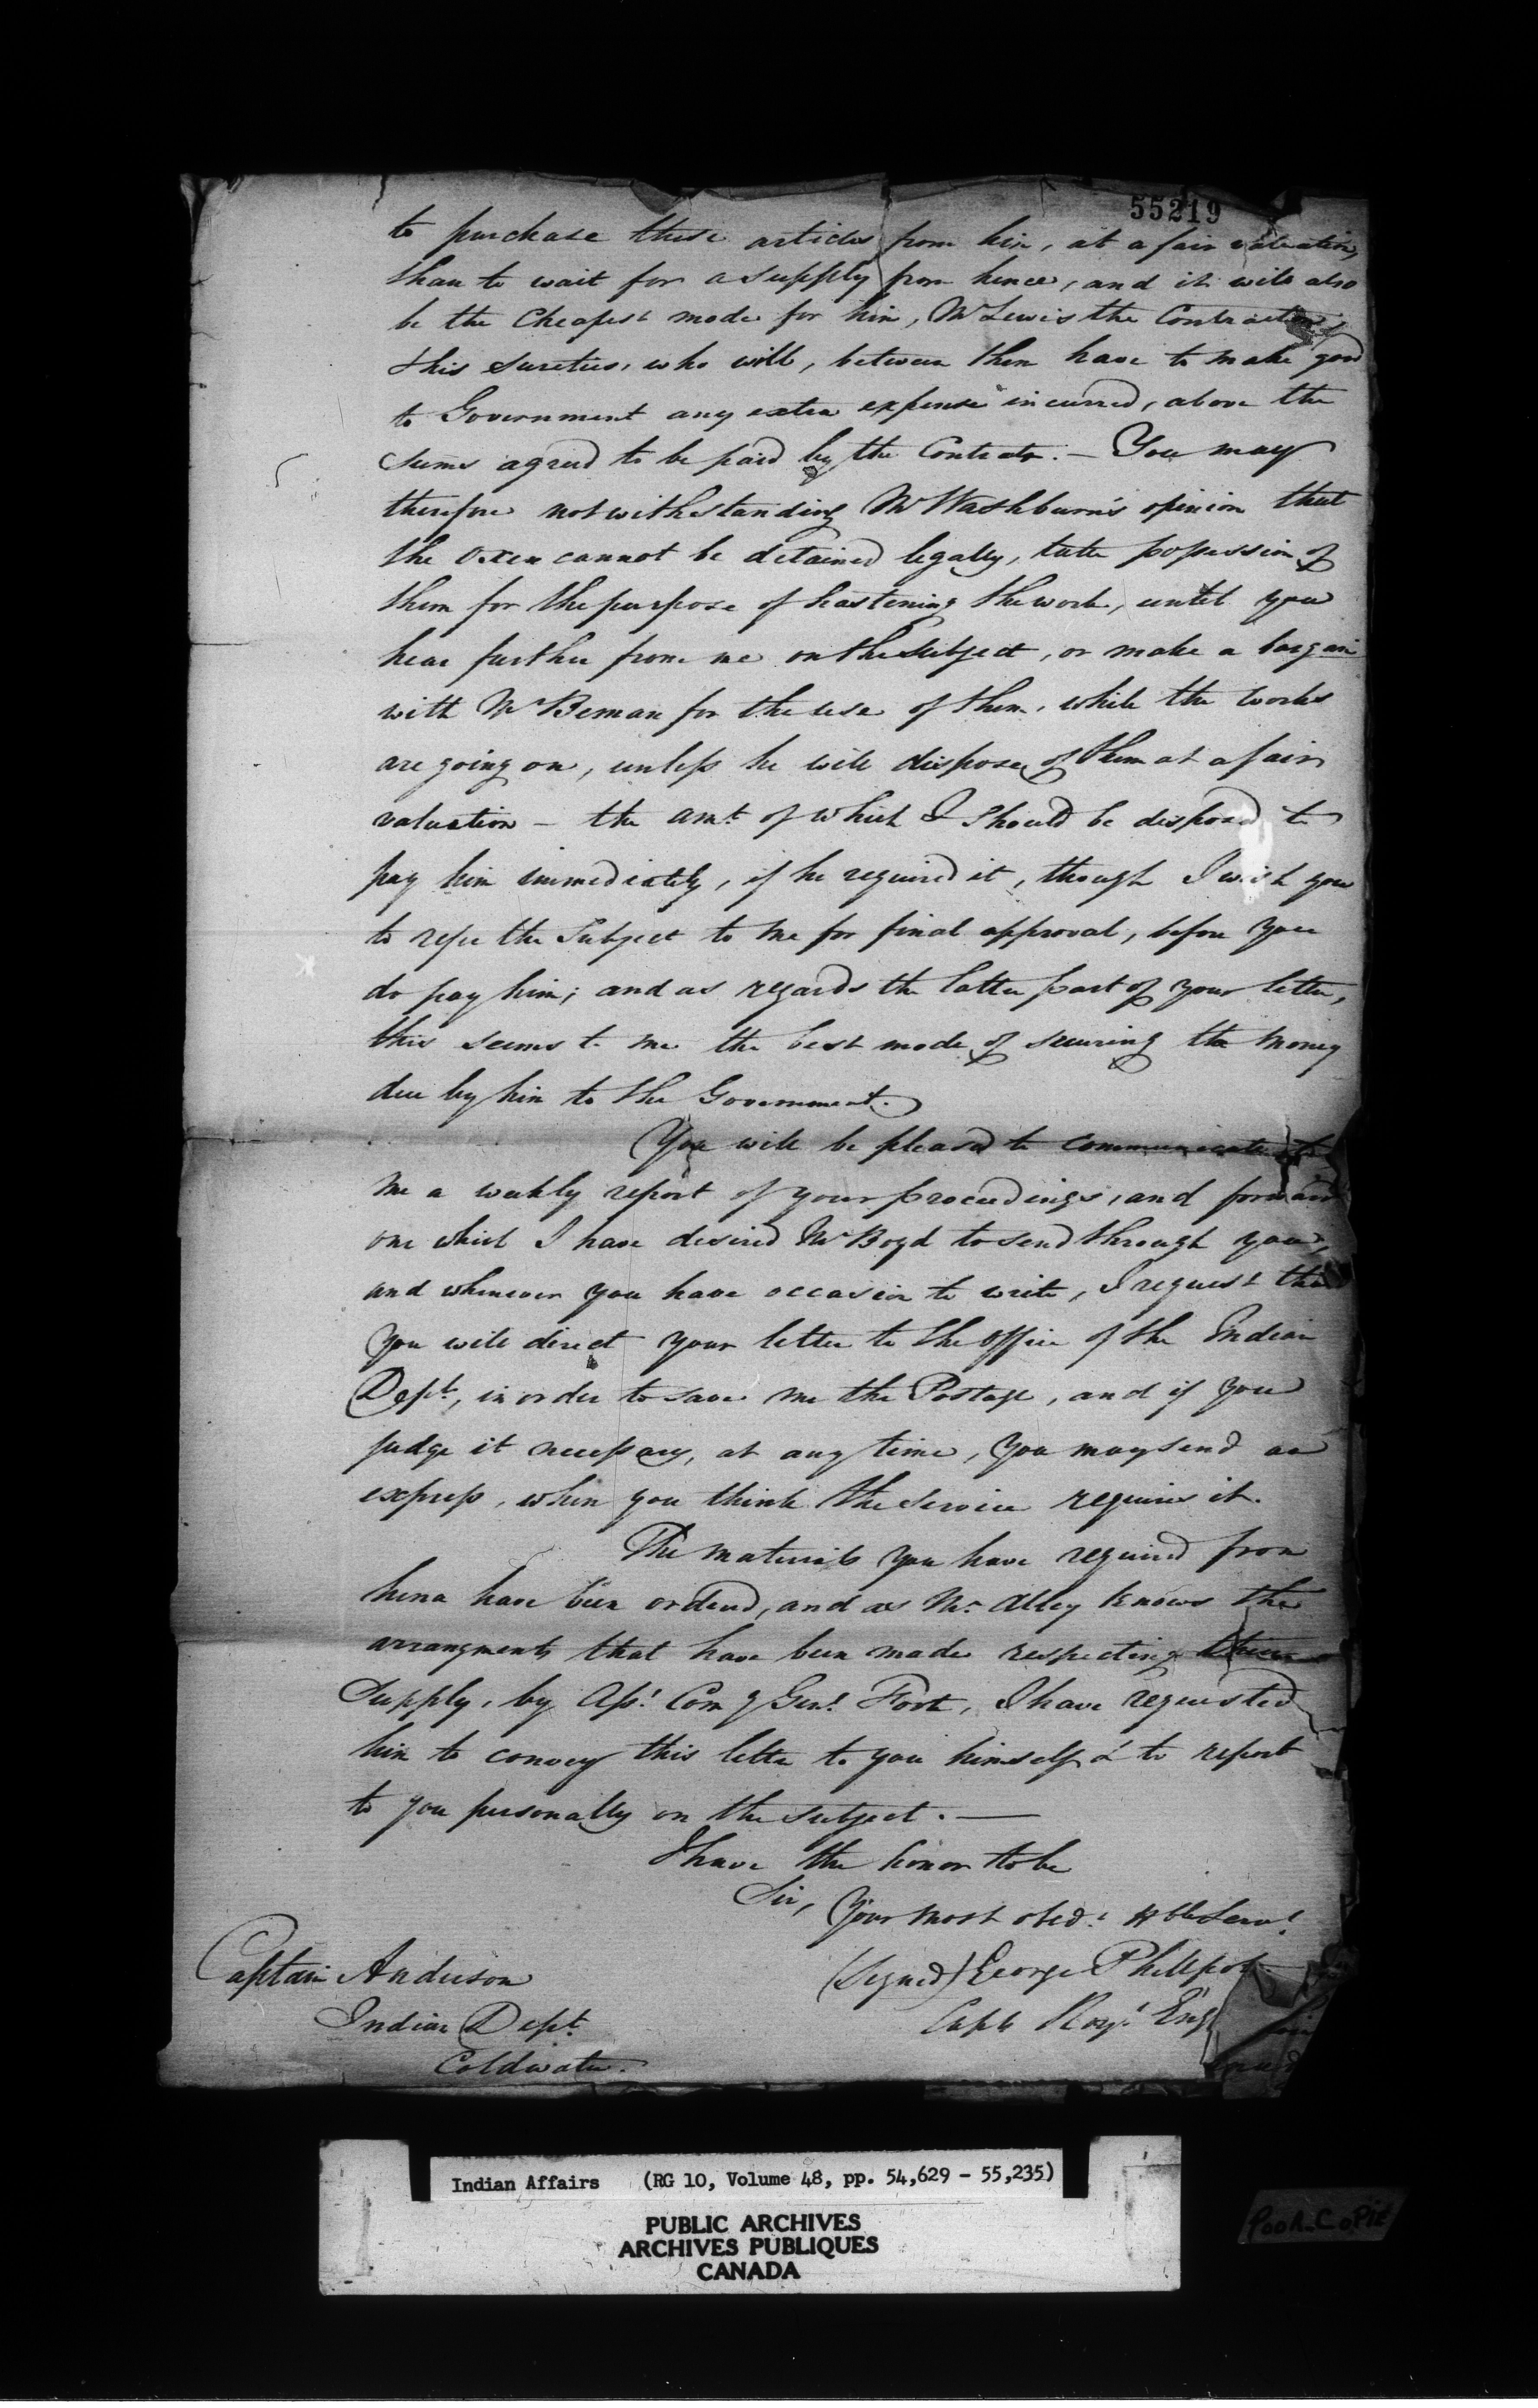 55219
to purchase these articles from him, at a fair valuation,
than to wait for a supply from hence, and it will also
be the Cheapest mode for him, Mr Lewis the Contractor,
& his sureties, who will, between them have to make good
to Government any extra expense incurred, above the
sums agreed to be paid by the Contract. — You may
therefore notwithstanding Mr Washburn's opinion that
the Oxen cannot be detained legally, take possession of
them for the purpose of hastening the work, until you
hear further from me on the Subject, or make a bargain
with Mr Beman for the use of them, while the works
are going on, unless he will dispose of them at a fair
valuation — the amt. of which I should be disposed to
pay him immediately, if he required it, though I wish you
to refer the Subject to me for final approval, before you
do pay him; and as regards the latter part of your letter,
this seems to me the best mode of securing the money
due by him to the Government.
You will be pleased to communicate to
me a weekly report of your proceedings, and forward
one which I have desired Mr Boyd to send through you,
and whenever you have occasion to write, I request that
you will direct your letter to the Office of the Indian
Dept, in order to save me the Postage, and if you
judge it necessary, at any time, you may send an
express, when you think the Service requires it.
The materials you have required from
hence have been ordered, and as Mr. Alley knows the
arrangments that have been made respecting their
Supply, by Asst. Comy Genl. Foote, I have requested
him to convey this letter to you himself & to report
to you personally on the subject. —
I have the honor to be
Sir,
Your most obedt. Hble Servt.
(Signed) George Phillpotts
Captain Anderson
Capt Royl. Engs
Indian Dept.
Coldwater.
Indian Affairs (RG 10, Volume 48, pp. 54,629 - 55,235)
PUBLIC ARCHIVES
ARCHIVES PUBLIQUES
CANADA
POOR COPIE